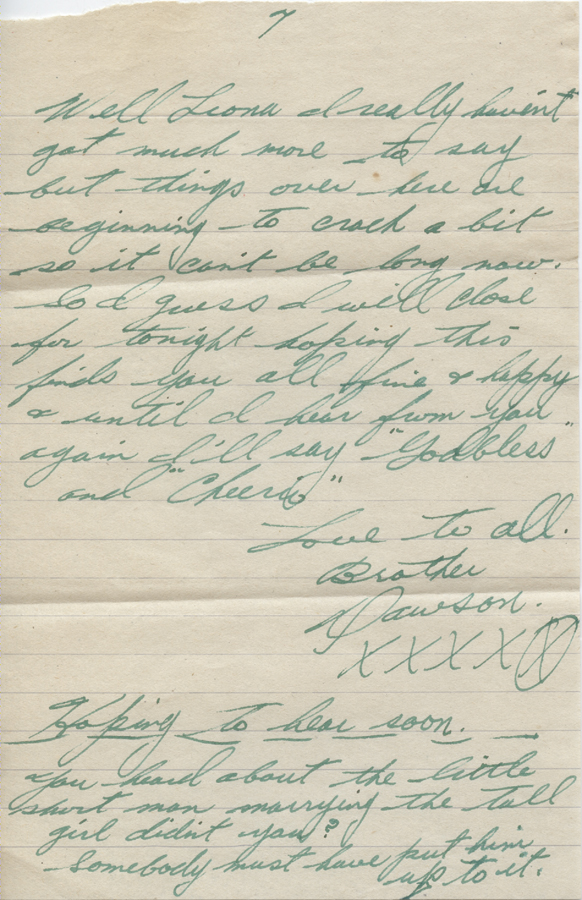 7
Well Liona I really haven't
got much more to say
but things over here are
beginning to crack a bit
so it can't be long now.
So I guess I will close
for tonight hoping this
finds you all fine & happy
& until I hear from you
again I'll say "Godbless"
and "Cheerio"
Love to all.
Brother
Dawson.
XXXXX
Hoping to hear soon.
You heard about the little
short man marrying the tall
girl didn't you?
Somebody must have put him
up to it.